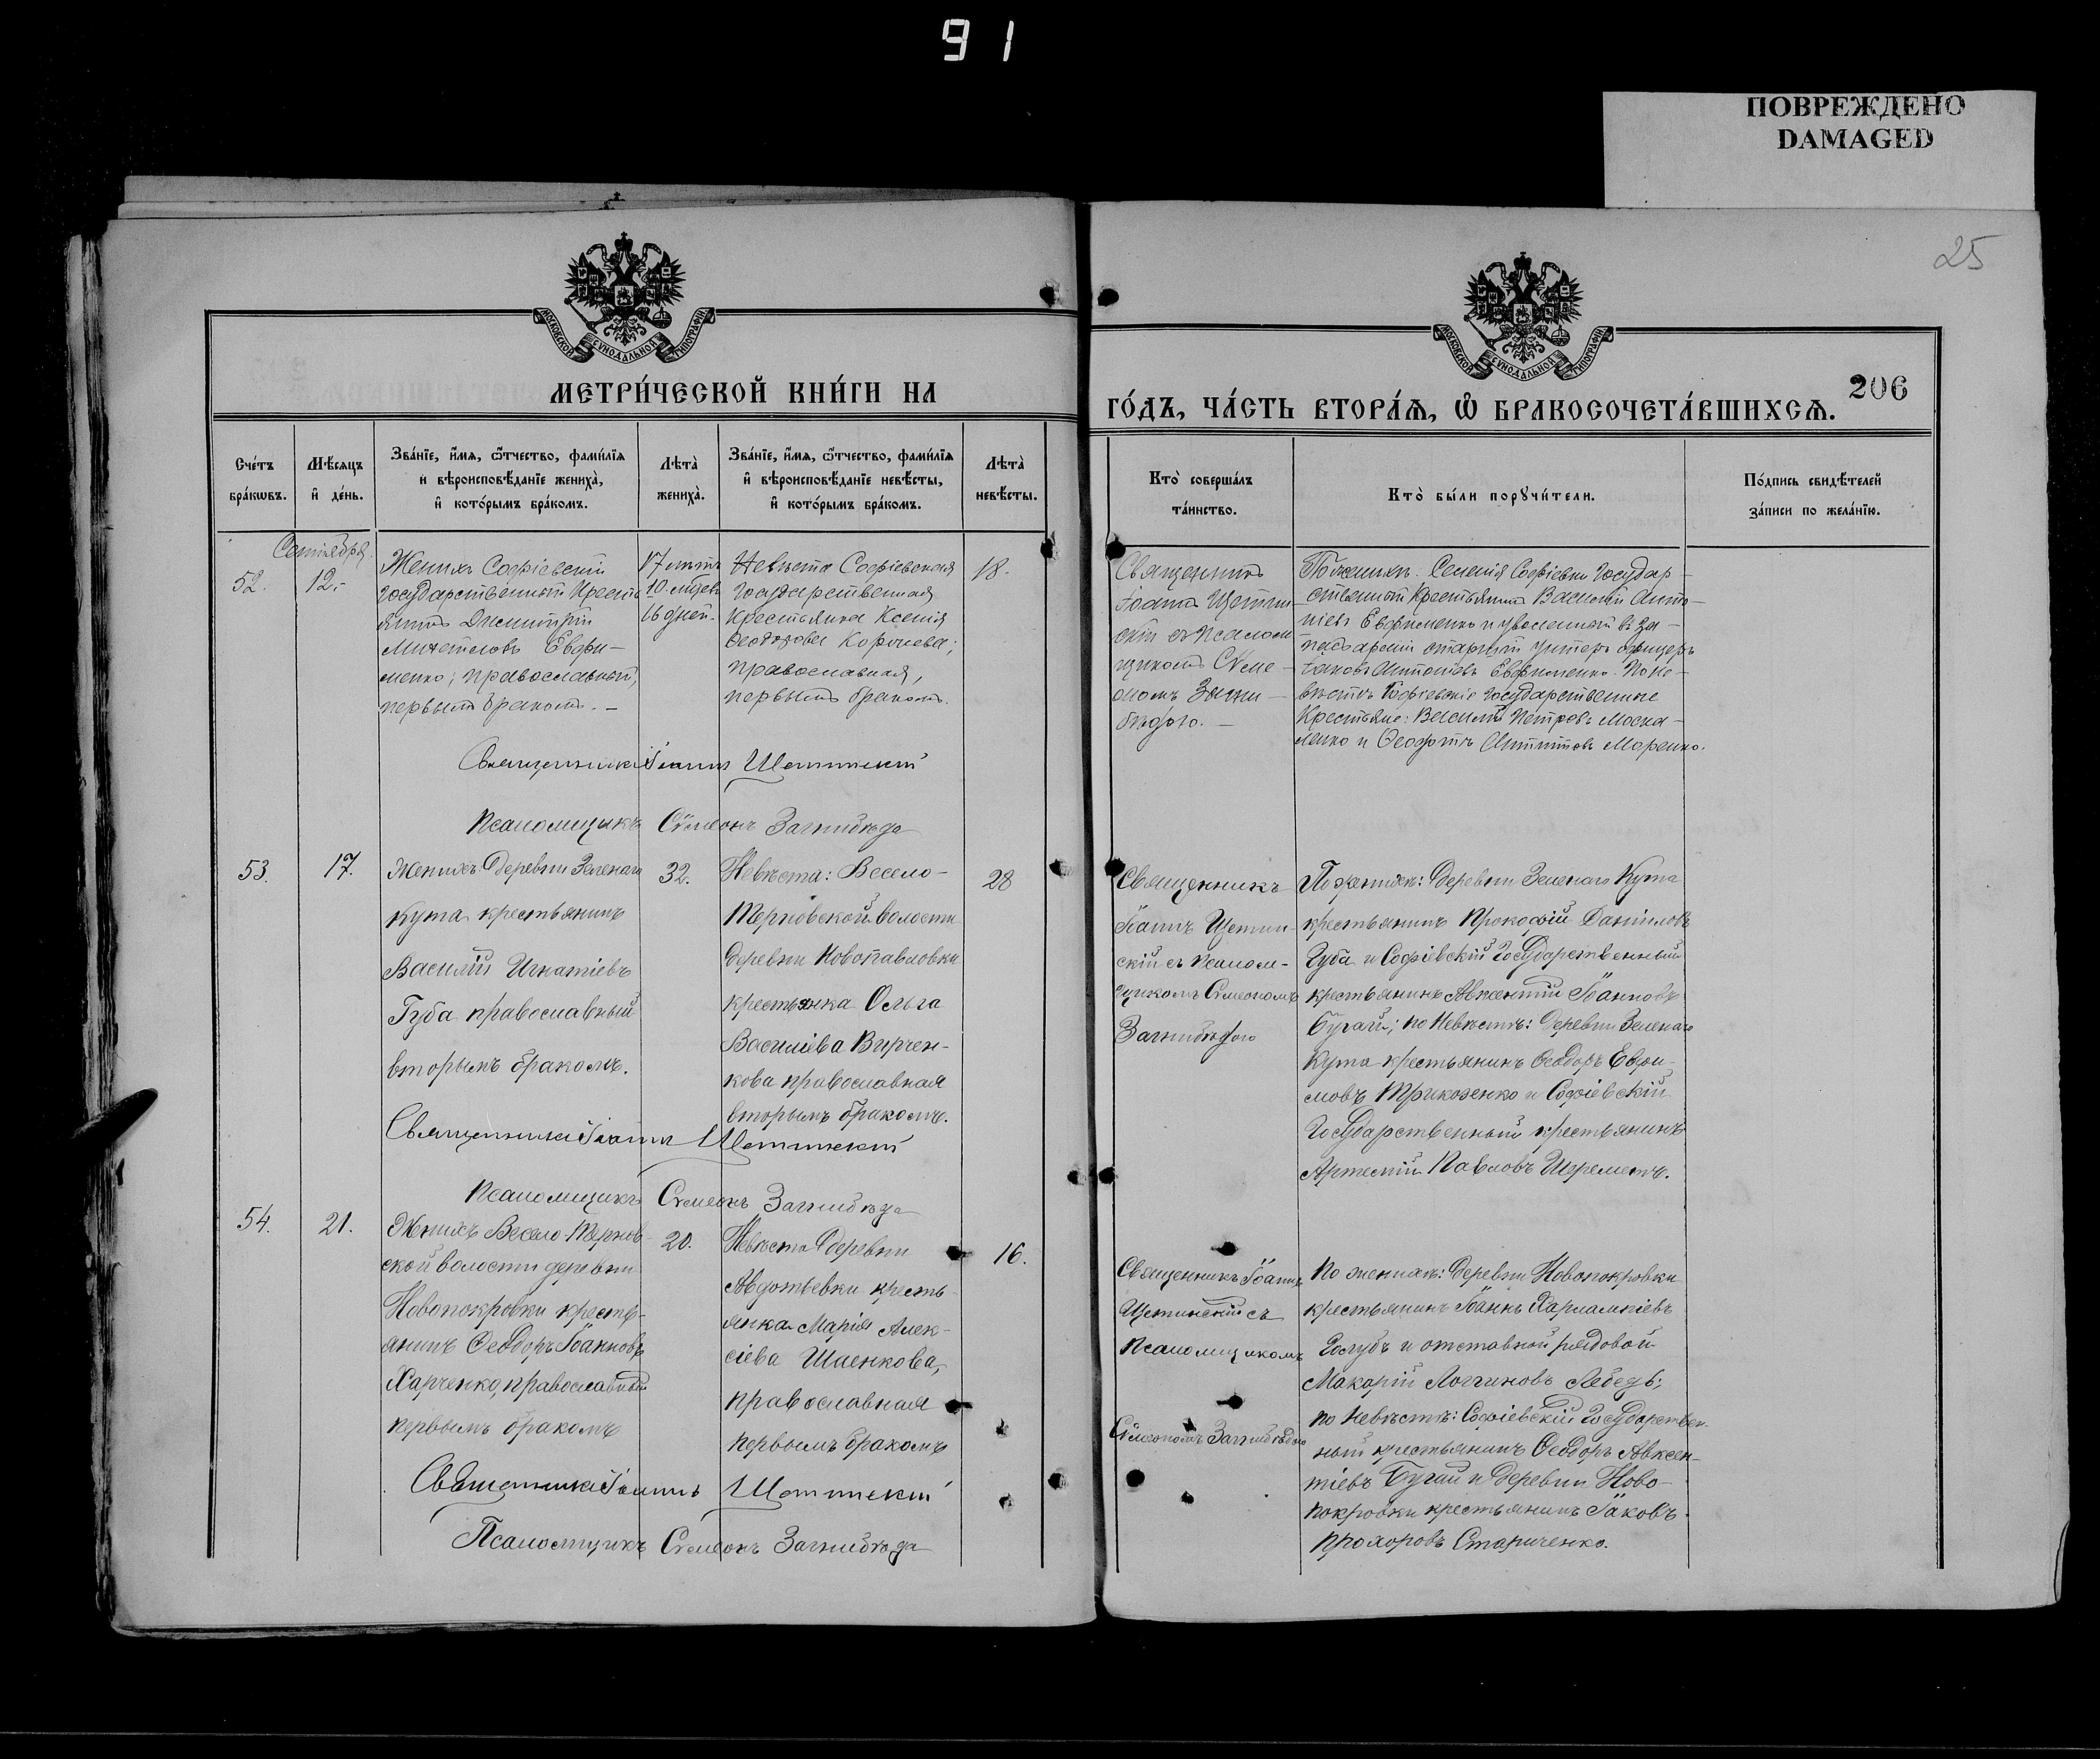 91
ПОВРЕЖДЕНО
DAMAGED
25
МОСКОВСКОЙ СѴНОДАЛЬНОЙ ТИПОГРАФІИ
МОСКОВСКОЙ СѴНОДАЛЬНОЙ ТИПОГРАФІИ
МЕТРИ́ЧЕСКОЙ КНИ́ГИ НА
ГО́ДЪ, ЧА́СТЬ ВТОРА́Ѧ, Ѽ БРАКОСОЧЕТА́ВШИХСѦ.
206
Сче́тъ
бра́кѡвъ.
Мѣ́сѧцъ
и҆ де́нь.
Зва́нїе, и҆́мѧ, ѻ҆́тчество, фами́лїѧ
и҆ вѣроисповѣ́данїе жениха̀,
и҆ кото́рымъ бра́комъ.
Лѣта̀
жениха̀.
Зва́нїе, и҆́мѧ, ѻ҆́тчество, фами́лїѧ
и҆ вѣроисповѣ́данїе невѣ́сты,
и҆ кото́рымъ бра́комъ.
Лѣта̀
невѣ́сты.
Кто̀ соверша́лъ
та́инство.
Кто̀ бы́ли порꙋчи́тели.
По́дпись свидѣ́телей
за́писи по жела́нїю.
Сентября.
52.
12.
Женихъ Софіевскій
государственный Кресть
янинъ Димитрій
Михайловъ Евфи-
менко; православный,
первымъ бракомъ. -
17 лѣтъ
10 мѣсяц
16 дней.
Невѣста Софіевская
государственная
Крестьянка Ксенія
Ѳеодорова
православная,
первымъ бракомъ.
18.
Священникъ
Іоаннъ Щетин-
скій съ псалом
щикомъ Сѵме-
ономъ Загни-
бѣдою. -
По женихѣ: Селенія Софіевки государ-
ственный крестьянинъ Василій Анто-
ніевъ Евфименко и уволенный въ за-
пасъ арміи старшій унтеръ офицеръ
Іаковъ Антоніевъ Евфименко. По не-
вѣстѣ: Софіевскіе государственные
Крестьяне: Василій Петровъ Моска-
ленко и Ѳеофилъ Моренко.
Священникъ Іоаннъ Щетинскій
Псаломщикъ Сѵмеонъ Загнибѣда
53.
17.
Женихъ: Деревни Зеленаго
Кута крестьянинъ
Василій Игнатіевъ
Губа православный
вторымъ бракомъ.
32.
Невѣста: Весело-
Терновской волости
деревни Новопавловки
крестьянка Ольга
Василіева Вирчен-
кова православная
вторымъ бракомъ.
28
Священникъ
Іоаннъ Щетин-
скій съ псалом-
щикомъ Сѵмеономъ
Загнибѣдою
По женихѣ: Деревни Зеленаго Кута
крестьянинъ Прокофій Даніиловъ
Губа и Софіевскій Государственный
крестьянинъ Авксентій Іоанновъ
Бугай; по невѣстѣ: Деревни Зеленаго
Кута крестьянинъ Ѳеодоръ Евфи-
мовъ Трикозенко и Софіевскій
Государственный крестьянинъ
Артемій Павловъ Шереметъ.
Священникъ Іоаннъ Щетинскій
Псаломщикъ Сѵмеонъ Загнибѣда
54.
21.
Женихъ Весело-Тернов-
ской волости деревни
Новопокровки кресть-
янинъ Ѳеодоръ Іоанновъ
Харченко, православный
первымъ бракомъ
20.
Невѣста Деревни
Авдотьевки кресть-
янка Марія Алек-
сіева Шаенкова,
православная
первымъ бракомъ
16.
Священникъ Іоаннъ
Щетинскій съ
псаломщикомъ
Сѵмеономъ Загнибѣдою
По женихѣ: Деревни Новопокровки
крестьянинъ Іоаннъ Харлампіевъ
Голубъ и отставной рядовой
Макарій Логгиновъ Лебедь;
по невѣстѣ: Софіевскій Государствен-
ный крестьянинъ Ѳеодоръ Авксен-
тіевъ Бугай и деревни Ново-
покровки крестьянинъ Іаковъ
Прохоровъ Стариченко.
Священникъ Іоаннъ Щетинскій
Псаломщикъ Сѵмеонъ Загнибѣда